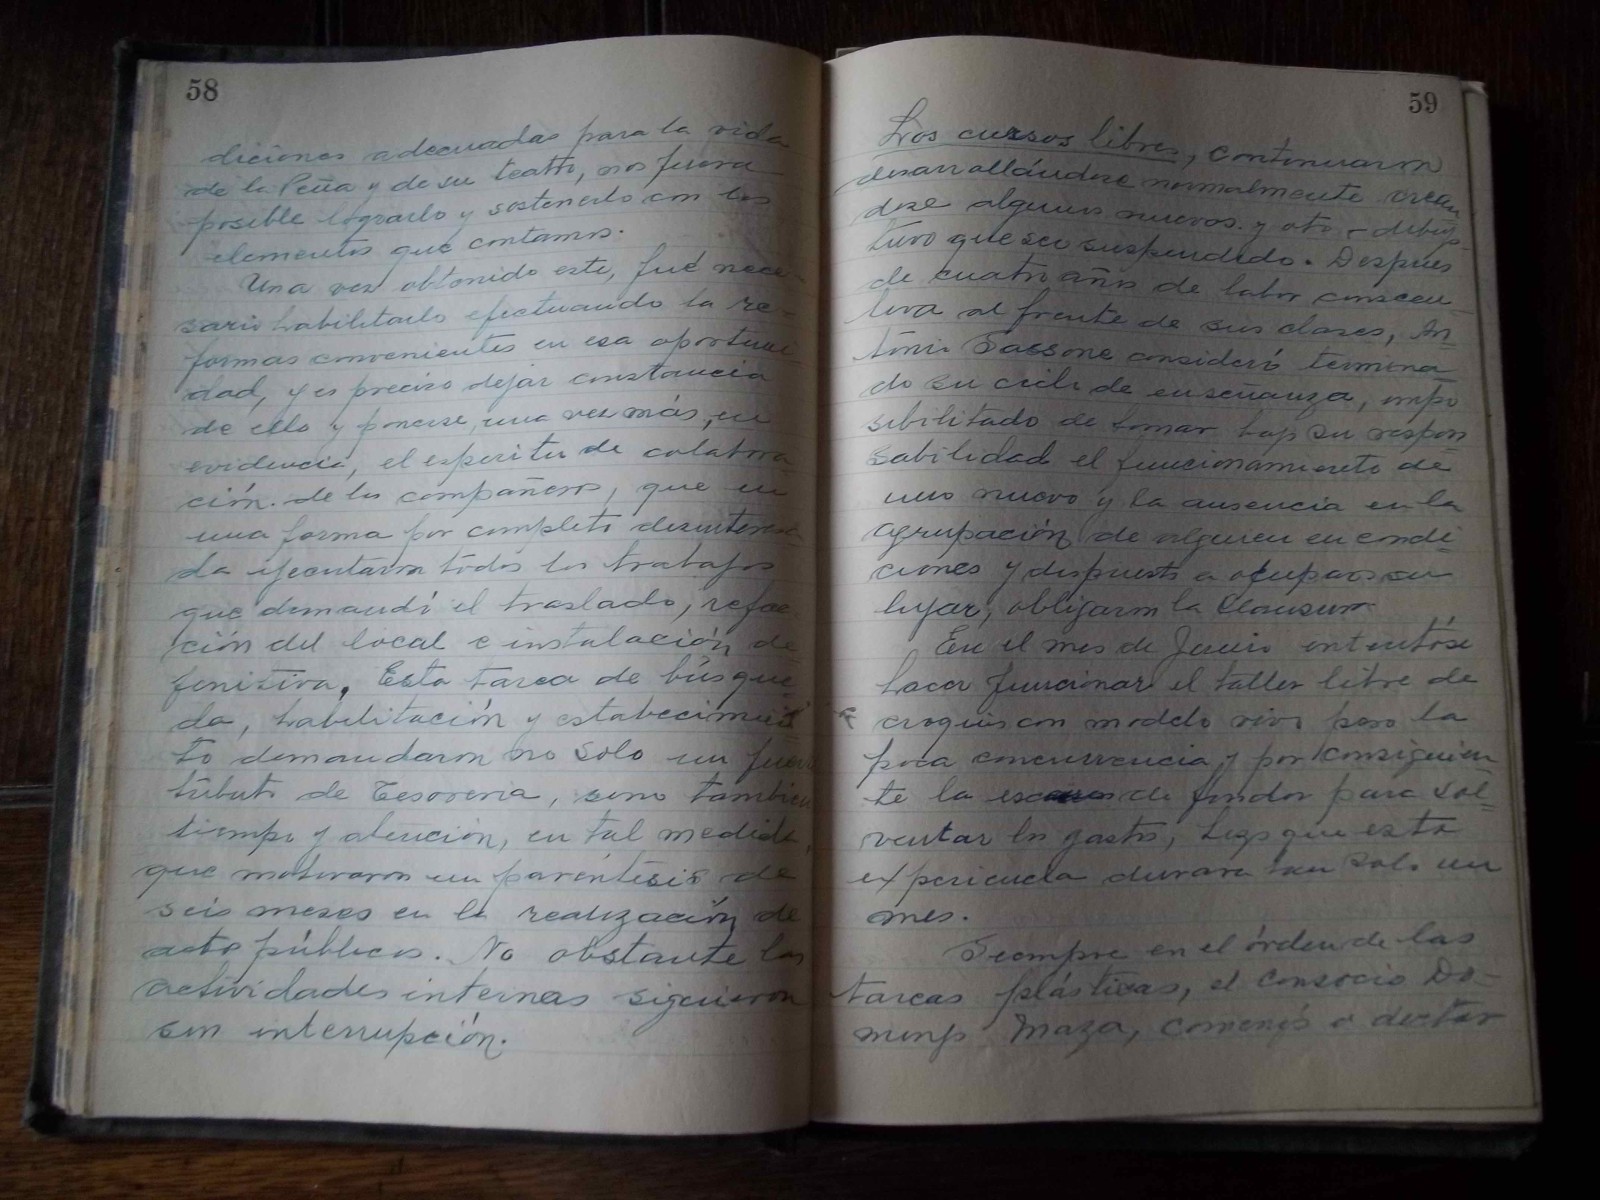 58
diciones adecuadas para la vida
de la Peña y de su teatro, nos fuera
posible lograrlo y sostenerlo con los
elementos que contamos.
Una vez obtenido este, fué nece-
sario habilitarlo efectuando la re-
formas convenientes en esa oportuni
dad, y es preciso dejar constancia
de ello y ponerse, una vez más, en
evidencia, el espíritu de colabora
ción de los compañeros, que en
una forma por completo desinteresa-
da ejecutaron todos los trabajos
que demandó el traslado, refac
ción del local e instalación de-
finitiva. Esta tarea de búsque-
da, habilitación y estabecimien
to demandaron no solo un fuer
tributo de Tesoreria, sino tambien
tiempo y atención, en tal medida,
que motivaron un paréntesis de
seis meses en la realización de
actos públicos. No obstante las
actividades internas siguieron
sin interrupción.
59
Los cursos libres, continuaron
desarrollándose normalmente crean
dose algunos nuevos y otro - dibujo -
tuvo que ser suspendido. Despues
de cuatro años de labor consecu
tiva al frente de sus clases, An-
tonio Sassone consideró termina
do su ciclo de enseñanza, impo
sibilitado de tomar bajo su respon
sabilidad el funcionamiento de
uno nuevo y la ausencia en la
agrupación de alguien en condi-
ciones y dispuesto a ocupar su
lugar, obligaron la clausura.
En el mes de Junio intentóse
hacer funcionar el taller libre de
croquis con modelo vivo pero la
poca concurrencia y por consiguien
te la de fondos para sol-
ventar los gastos, hizo que esta
experiencia durara tan solo un
mes.
Siempre en el órden de las
tareas plásticas, el consocio Do-
mingo Maza, comenzó a dictar